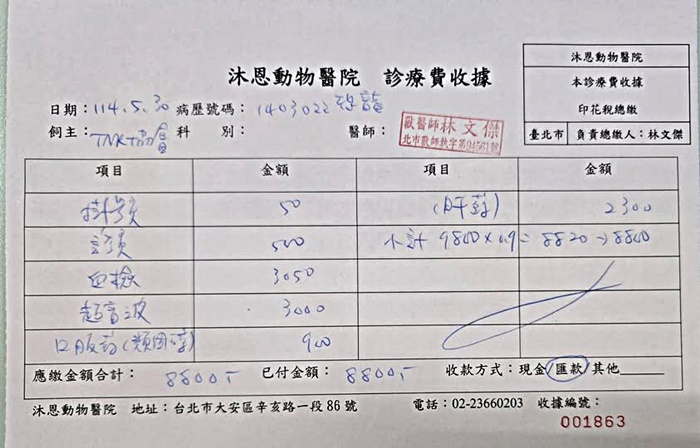 沐恩動物醫院 診療費收據
沐恩動物醫院
本診療費收據
印花稅總繳
臺北市 負責總繳人：林文傑
日期：114.5.30 病歷號碼：1403022
飼主：TNK協會 科 別： 醫師：
獸醫師林文傑
項目 金額 項目 金額
掛號 50 (肝藥) 2300
診項 500 小計 9800×0.9=8820→8800
血檢 3050
超音波 3000
口服藥(類固醇) 900
應繳金額合計：8800 已付金額：8800 收款方式：現金/匯款/其他
沐恩動物醫院 地址：台北市大安區辛亥路一段86號 電話：02-23660203 收據編號：
001863